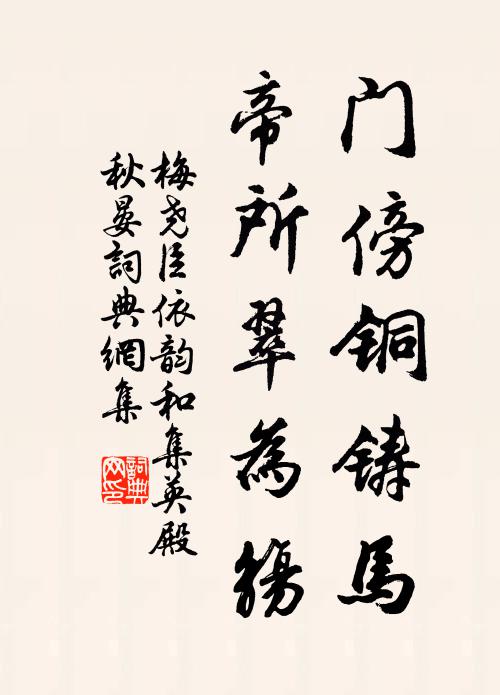 门傍铜铸馬
帝所翠為觴
梅尧臣依韵和集英殿
秋晏詞典網集
詞典
网印